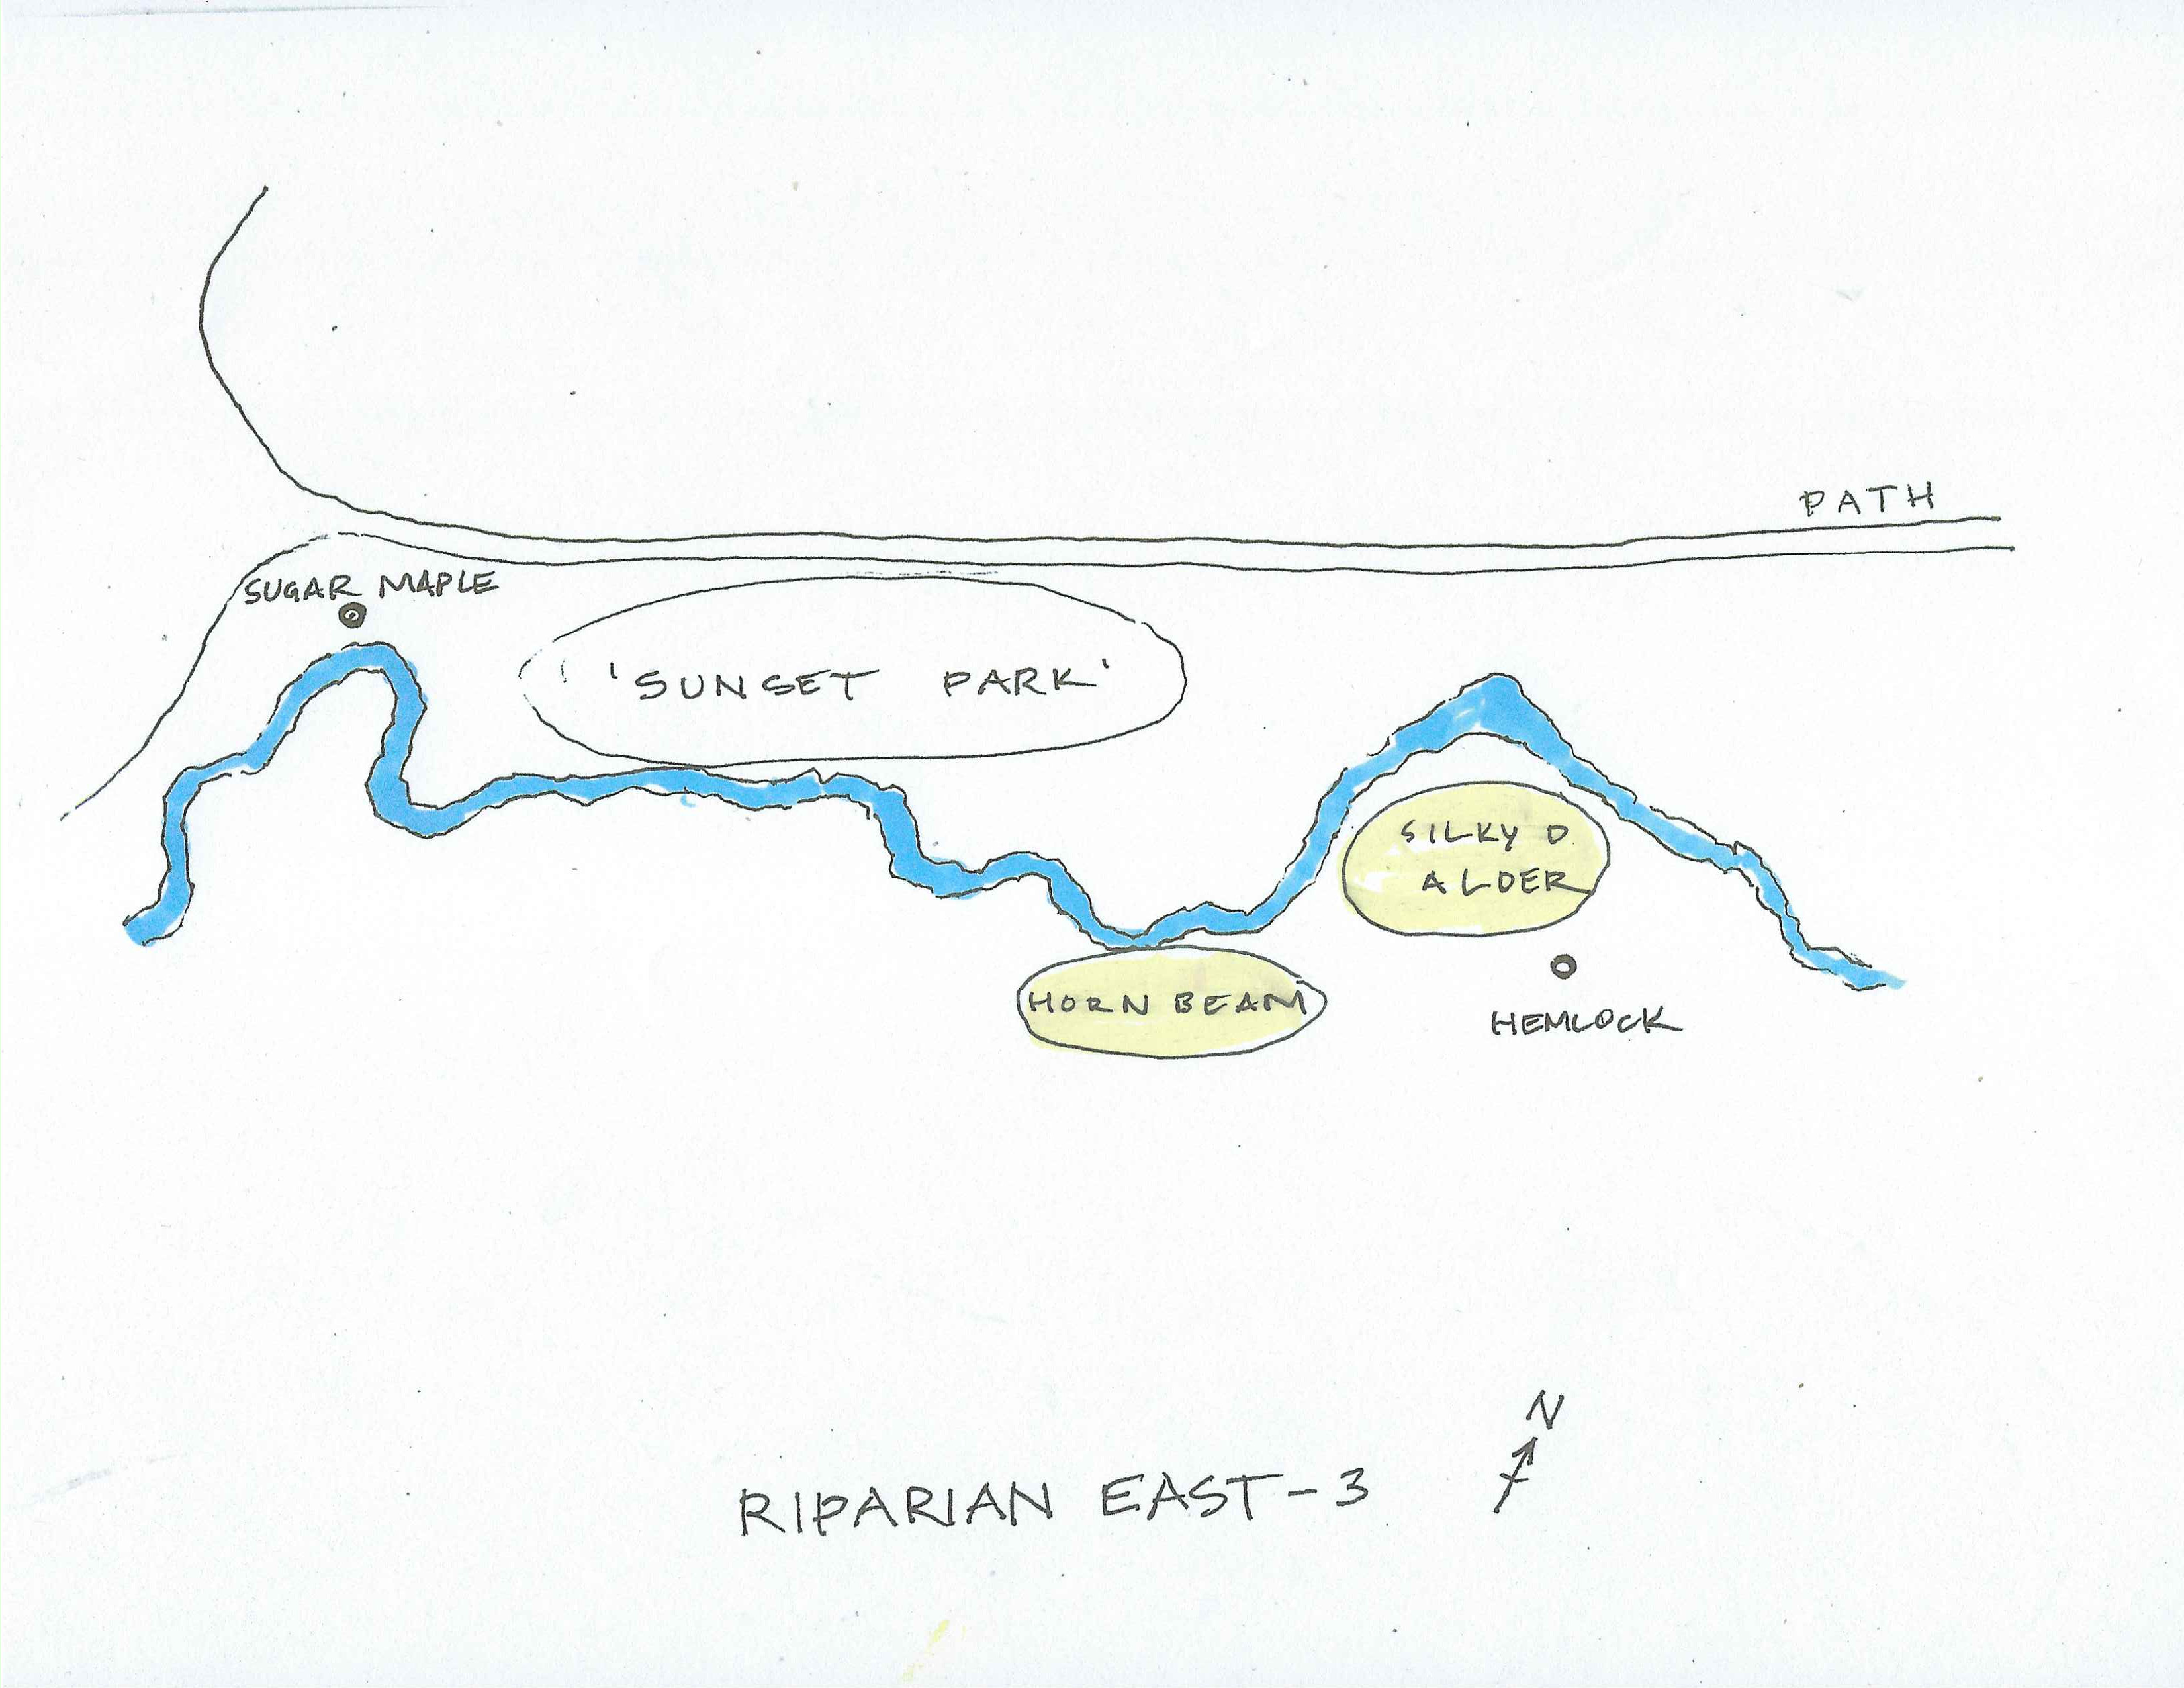 PATH
SUGAR MAPLE
'SUNSET PARK'
SILKY D
ALDER
HORN BEAM
HEMLOCK
N
RIPARIAN EAST-3